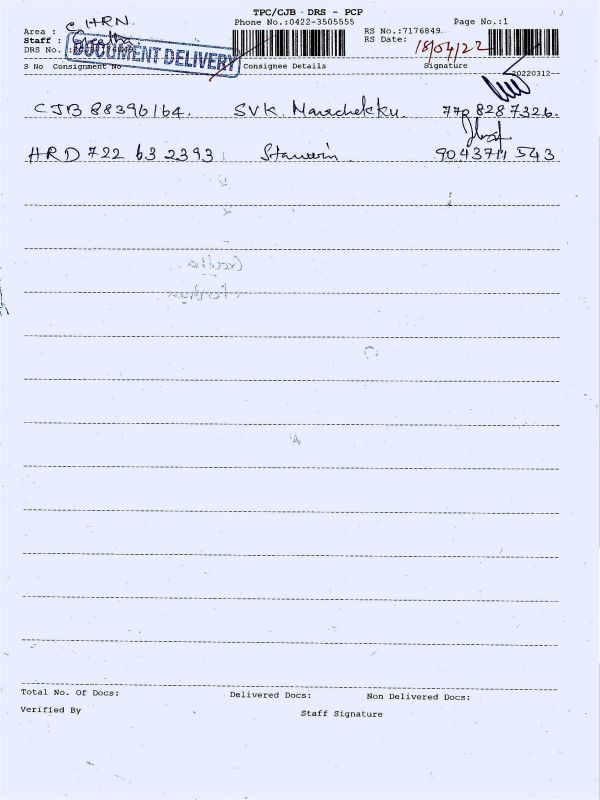 TPC/CJB - DRS - PCP
Phone No.:0422-3505555 Page No.:1
C HRN.
Area :
Staff :
RS No.:7176849
RS Date: 18/04/22
DRS No.
DOCUMENT DELIVERY
S No Consignment No Consignee Details Signature
20220312--
CJB 88396164. SVK. 770 828 7326.
HRD 722 63 2393 90 4371 543
Total No. Of Docs: Delivered Docs: Non Delivered Docs:
Verified By Staff Signature